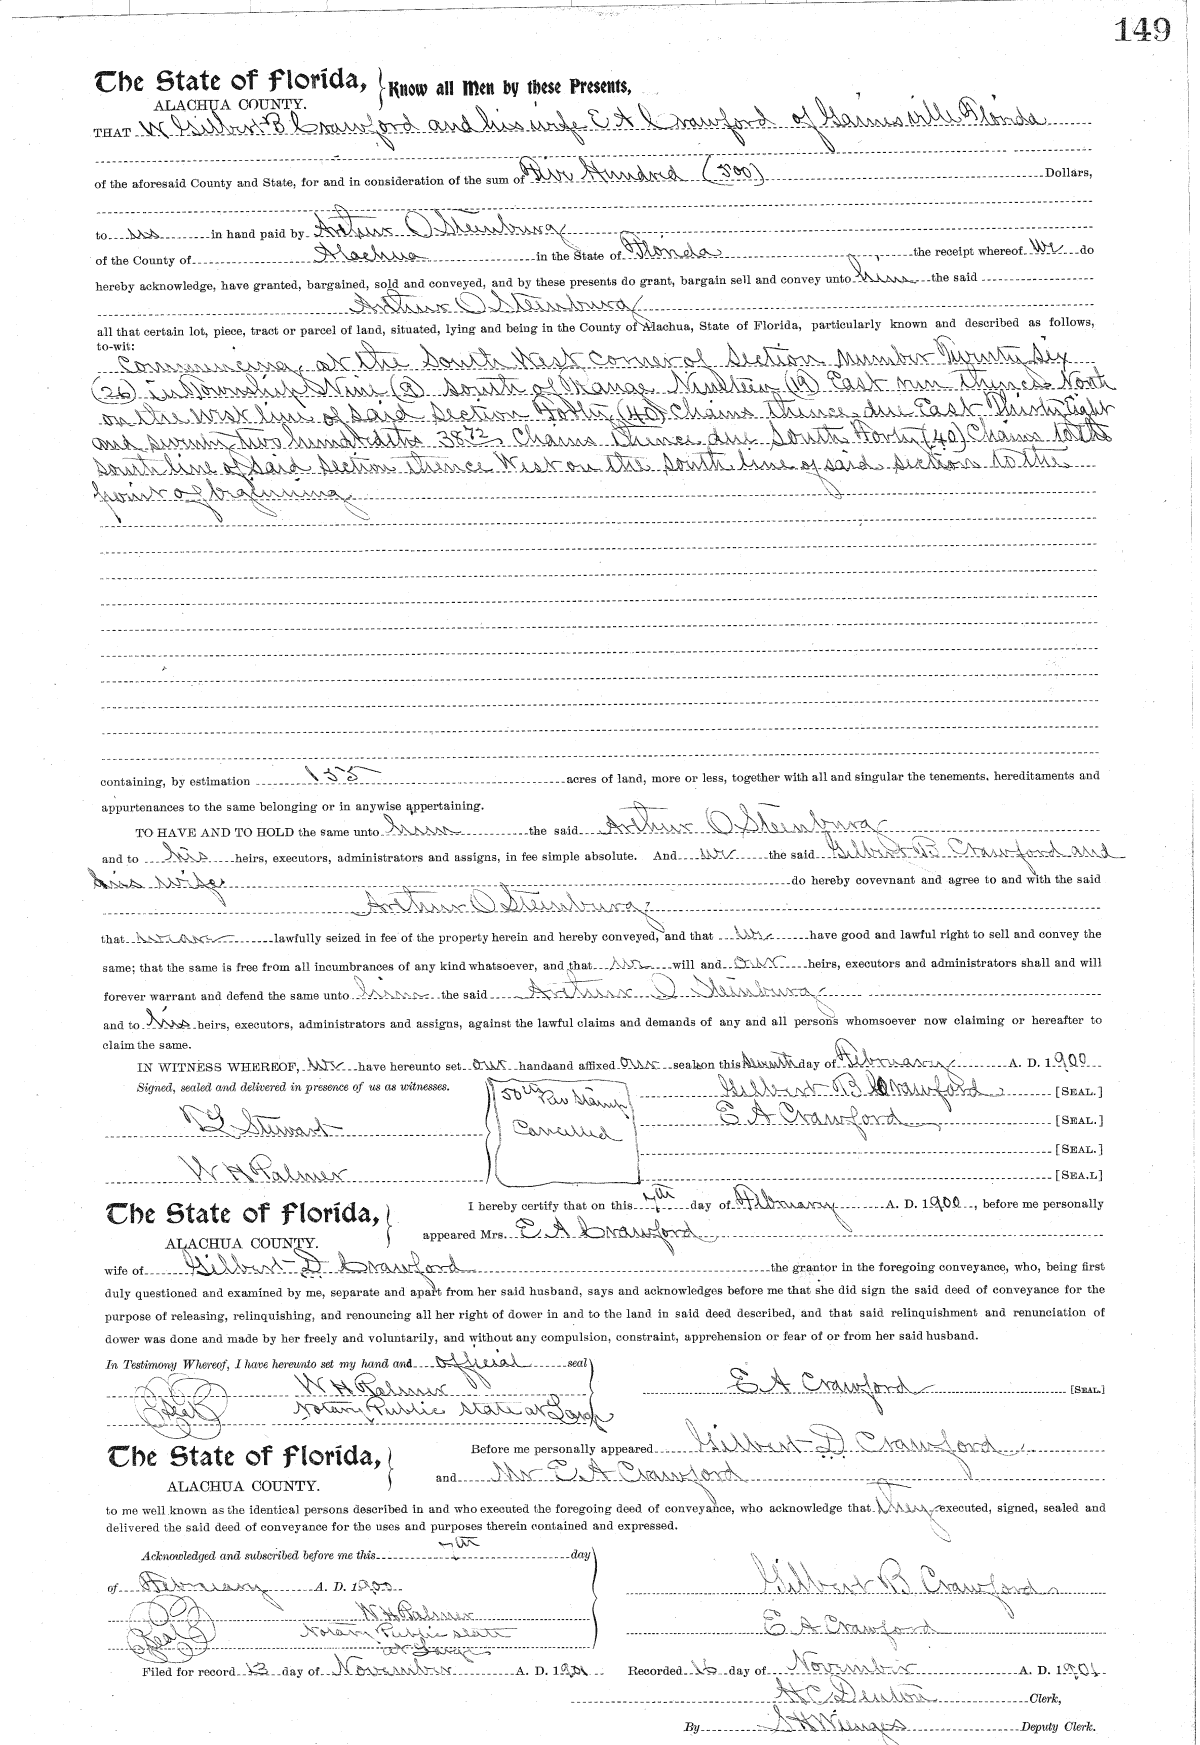 149
The State of Florida, Know all Men by these Presents,
ALACHUA COUNTY.
THAT We Gilbert B Crawford and his wife E A Crawford of Gainesville Florida
of the aforesaid County and State, for and in consideration of the sum of Five Hundred (500) Dollars,
to us in hand paid by Arthur O Steinburg
of the County of Alachua in the State of Florida the receipt whereof we do
hereby acknowledge, have granted, bargained, sold and conveyed, and by these presents do grant, bargain sell and convey unto him the said
Arthur O Steinburg
all that certain lot, piece, tract or parcel of land, situated, lying and being in the County of Alachua, State of Florida, particularly known and described as follows,
to-wit:
Commencing at the South West corner of Section number Twenty Six
(26) in Township Nine (9) South of Range Nineteen (19) East run thence North
on the west line of said section Forty (40) Chains thence due East Thirty Eight
and seventy two hundredths 38 72 Chains thence due South Forty (40) Chains to the
south line of said section thence West on the south line of said section to the
point of beginning
containing, by estimation 155 acres of land, more or less, together with all and singular the tenements, hereditaments and
appurtenances to the same belonging or in anywise appertaining.
TO HAVE AND TO HOLD the same unto him the said Arthur O Steinburg
and to his heirs, executors, administrators and assigns, in fee simple absolute. And we the said Gilbert B Crawford and
his wife do hereby covevnant and agree to and with the said
Arthur O Steinburg
that we are lawfully seized in fee of the property herein and hereby conveyed, and that we have good and lawful right to sell and convey the
same; that the same is free from all incumbrances of any kind whatsoever, and that we will and our heirs, executors and administrators shall and will
forever warrant and defend the same unto him the said Arthur O Steinburg
and to his heirs, executors, administrators and assigns, against the lawful claims and demands of any and all persons whomsoever now claiming or hereafter to
claim the same.
IN WITNESS WHEREOF, we have hereunto set our hands and affixed our seals on this seventh day of February A. D. 1900
Signed, sealed and delivered in presence of us as witnesses. 50 ctg Rev Stamp Gilbert B Crawford [SEAL.]
Cancelled E A Crawford [SEAL.]
Stewart [SEAL.]
W H Palmer [SEA.L]
The State of Florida, I hereby certify that on this 7th day of February A. D. 1900, before me personally
ALACHUA COUNTY. appeared Mrs. E A Crawford
wife of Gilbert D Crawford the grantor in the foregoing conveyance, who, being first
duly questioned and examined by me, separate and apart from her said husband, says and acknowledges before me that she did sign the said deed of conveyance for the
purpose of releasing, relinquishing, and renouncing all her right of dower in and to the land in said deed described, and that said relinquishment and renunciation of
dower was done and made by her freely and voluntarily, and without any compulsion, constraint, apprehension or fear of or from her said husband.
In Testimony Whereof, I have hereunto set my hand and official seal
W H Palmer E A Crawford [SEAL.]
Seal Notary Public State at Large
The State of Florida, Before me personally appeared Gilbert D Crawford
ALACHUA COUNTY. and Mr E A Crawford
to me well known as the identical persons described in and who executed the foregoing deed of conveyance, who acknowledge that they executed, signed, sealed and
delivered the said deed of conveyance for the uses and purposes therein contained and expressed.
Acknowledged and subscribed before me this 7th day
of February A. D. 1900 Gilbert B Crawford
W H Palmer
Seal Notary Public State E A Crawford
at Large
Filed for record 13 day of November A. D. 1901 Recorded 16 day of November A. D. 1901
H C Denton Clerk,
By S H Wienges Deputy Clerk.